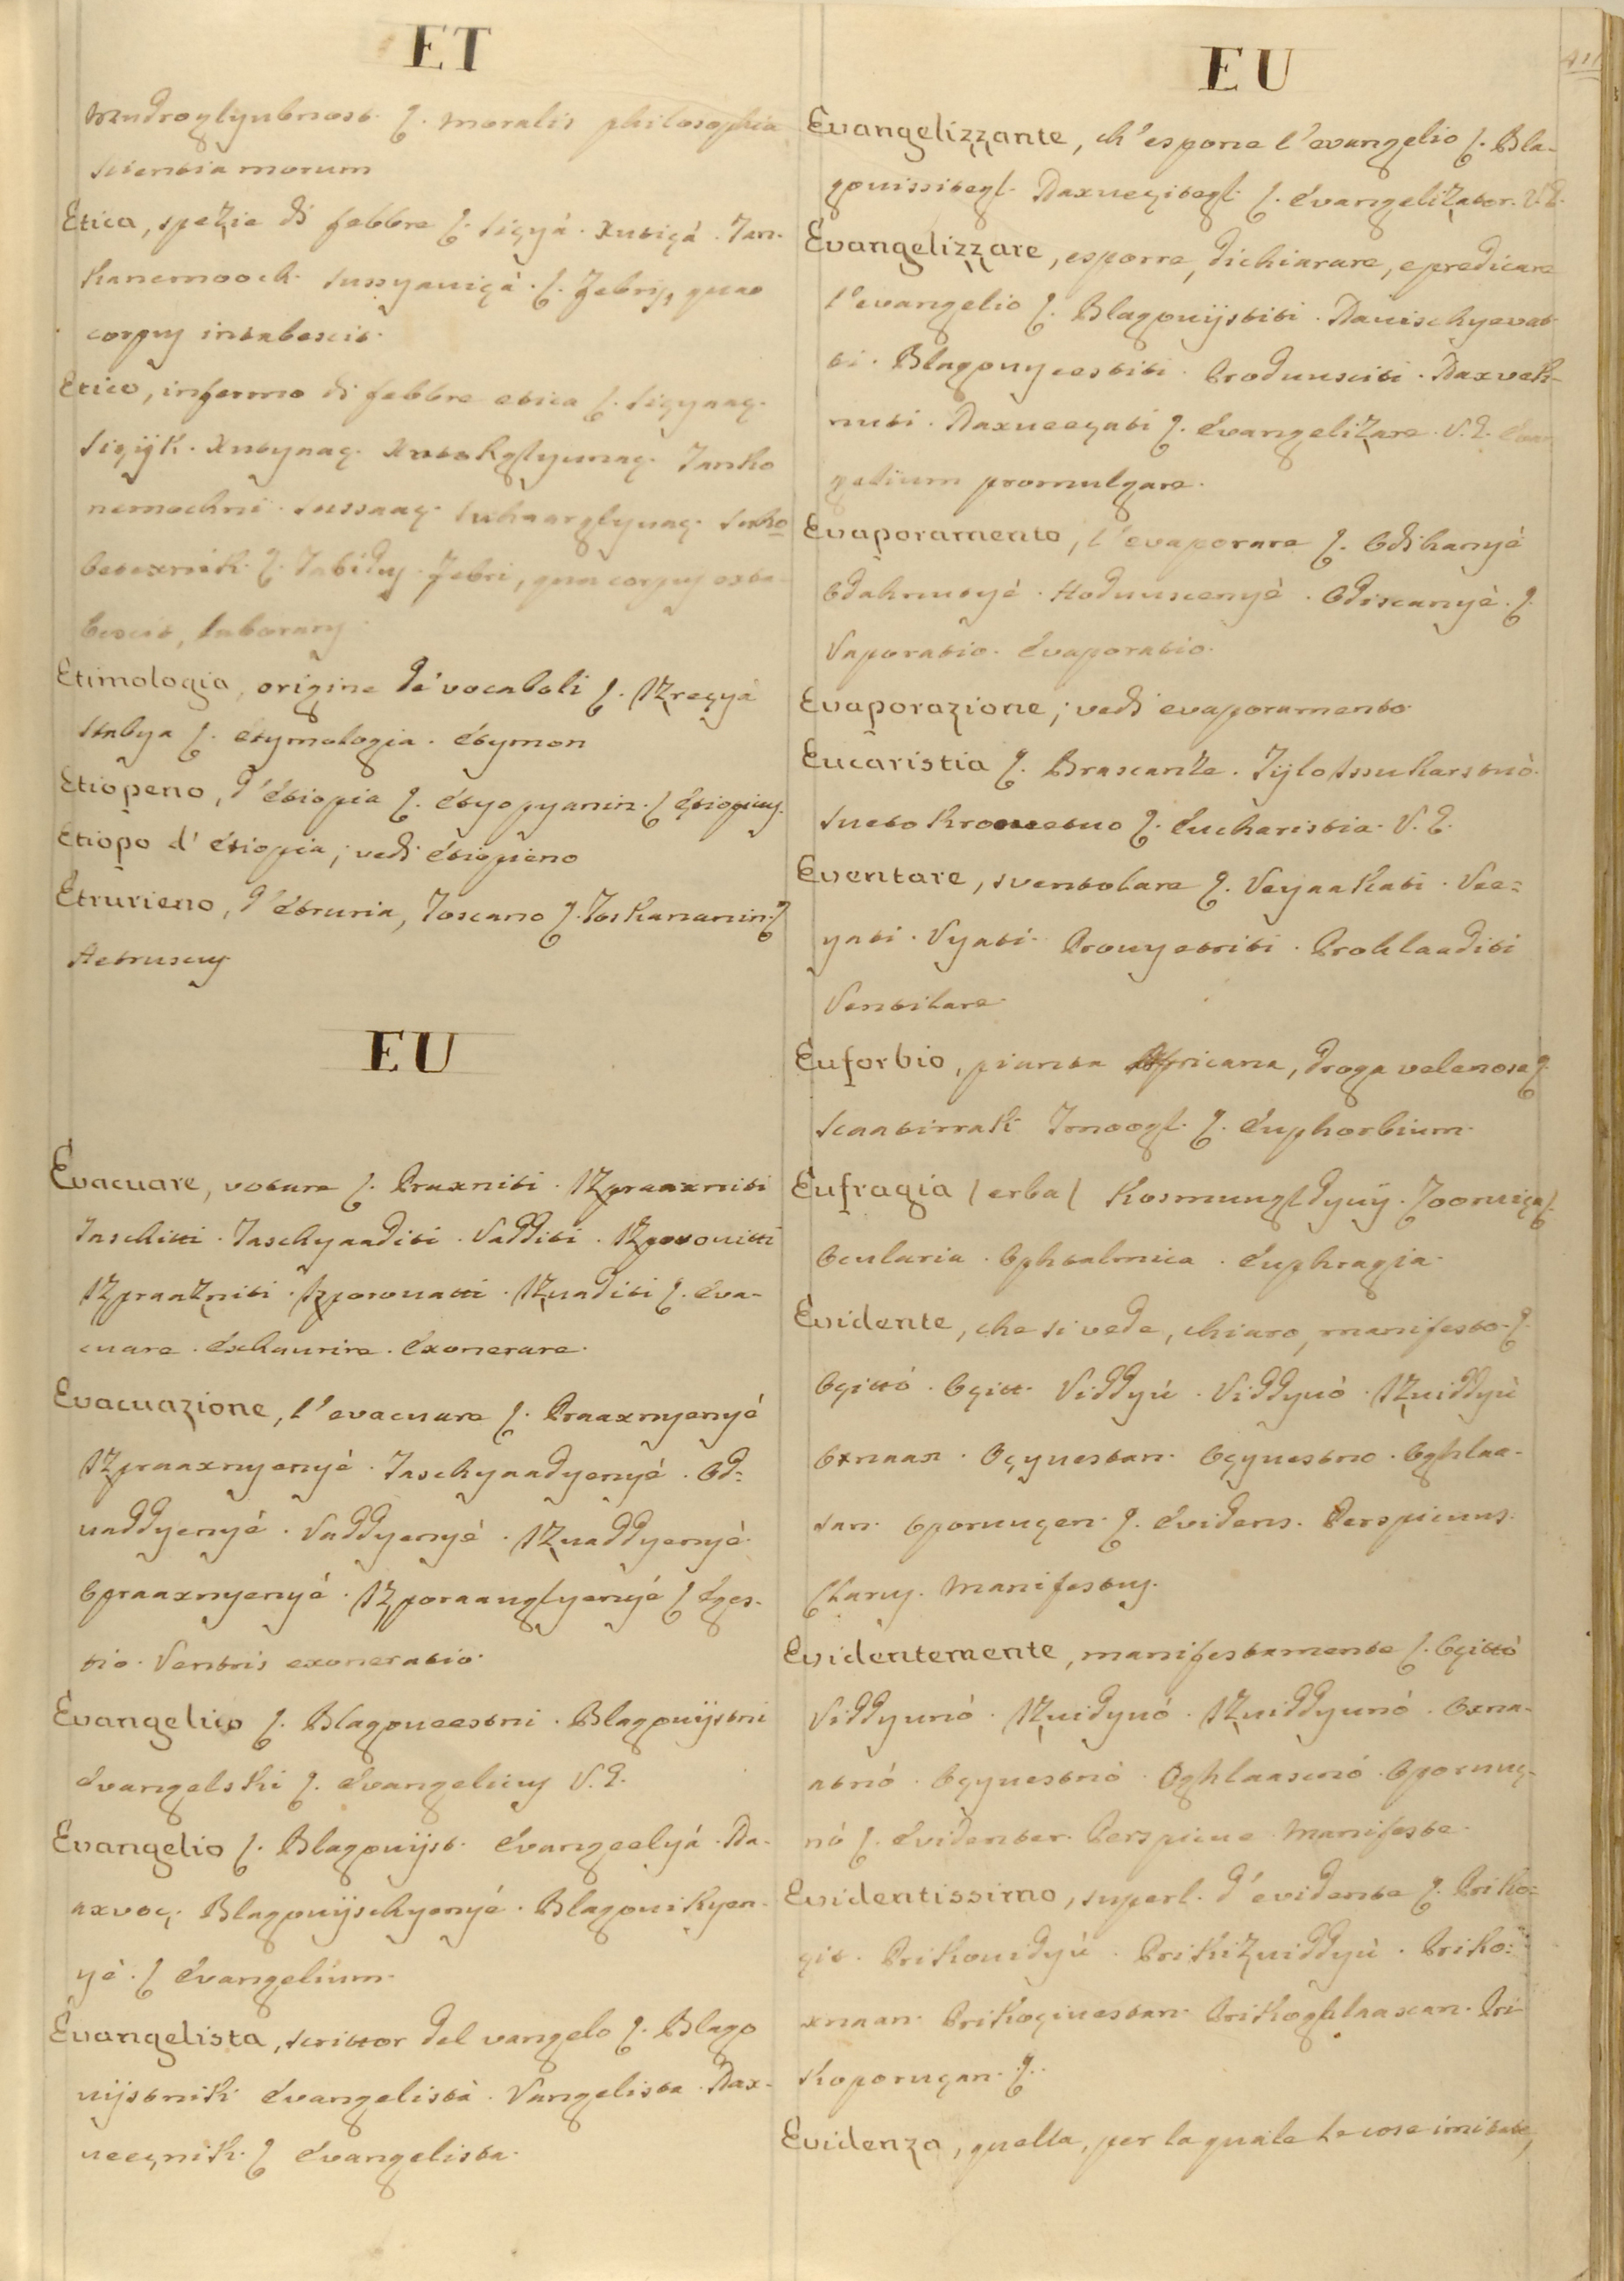 ET
Mudroglyubnost. ſ. moralis philosophia
scientia morum
Etica, spezie di febbre ſ. Siçyá. Xutiçá. Tan-
kanemooch. Sussyauiçà. ſ. Febris, quae
corpus intabescit.
Etico, infermo di febbre etica ſ. Siçyaaç.
Siçijk. Xutynaç. Tanko
nemochni. Sussaaç.
ſ. Tabidus. Febri, qua corpus
laborans.
Etimologia, origine de' vocaboli ſ. Izreçyá
Stabya ſ. etymologia. Etymon
Etiopeno, d'Etiopia ſ. Etyopyanin. ſ Etiopicus.
Etiopo d'Etiopia; vedi Etiopieno
Etrurieno, d'Etruria, Toscano ſ. Toskananin. ſ
Hetruscus
EU
Evacuare, votare ſ. Praxniti. Izpraaxniti
Taschitti. Taschyaaditi. Vadditi.
Izpraazniti. Izporouatti. Izuaditi ſ. Eva-
cuare. Exhaurire. Exonerare.
Evacuazione, l'evacuare ſ. Praaxnyenyé
Izpraaxnyenyé. Taschyaadyenyé. Od=
uaddyenyé. Vaddyenyé. Izuaddyenyé.
Opraaxnyenyé. Izporaanglyenyé ſ Eges-
tio. Ventris exoneratio.
Evangelico ſ. Blagoueestni. Blagouijstni
Evangelski ſ. Evangelicus V.E.
Evangelio ſ. Blagouijst. Evangeelyá. Da-
axvoç. Blagouijschyenyé. Blagouikyen-
yé. ſ Evangelium.
Evangelista, scrittor del vangelo ſ. Blago
uijstnik. Evangelistà. Vangelista. Dax-
ueeçnik. ſ Evangelista.
EU
Evangelizzante, ch'espone l'evangelio ſ. Bla-
gouistitegl. Daxueçitegl. ſ. Evangelizator. V.E.
Evangelizzare, esporre, dichiarare, e predicare
l'evangelio ſ. Blagouijstiti. Dauischyevat-
ti. Blagouycestiti. Produusciti. Daxvek-
nuti. Daxueeçati ſ. Evangelizare. V.E. Evan
gelium promulgare.
Evaporamento, l'evaporare ſ. Odihanyé
Odahnutyé. Hoduuscenyé. Odiscanyè. ſ.
Vaporatio. Evaporatio.
Evaporazione; vedi evaporamento
Eucaristia ſ. Brascanze. Tijlo Issukarstuò.
Sueto ſ. Eucharistia. V.E.
Eventare, sventolare ſ. Veyaakati. Vee=
yati. Vyati. Prouyetriti. Prohlaaditi
Ventilare.
Euforbio, pianta Africana, droga velenosa ſ.
Scaatirrak Tmoogl. ſ. Euphorbium.
Eufragia /erba/ Zooruiça ſ.
Ocularia. Ophtalmica. Euphragia.
Evidente, che si vede, chiaro, manifesto. ſ.
Oçittó. Oçitt. Viddyú. Viddyuó. Izuiddyù
Oxnaan. Oçyuestan. Oçyuestno. Oghlaa-
san. Oporuuçen. ſ. Evidens. Perspicuus.
Clarus. Manifestus.
Evidentemente, manifestamente ſ. Oçittó
Viddyunó. Izuidyuó. Izuiddyunó. Oxna-
atnó. Oçyuestnò. Oghlaascnó. Oporuuç-
nó ſ. Evidenter. Perspicue. Manifeste.
Evidentissimo, superl. d'evidente ſ. Priko=
çit. Prikouidyù. Prikizuiddyù. Priko=
xnaan. Prikoçiuestan. Prikoghlaascan. Pri
koporuçan. ſ.
Evidenza, quella, per la quale le cose imitate,